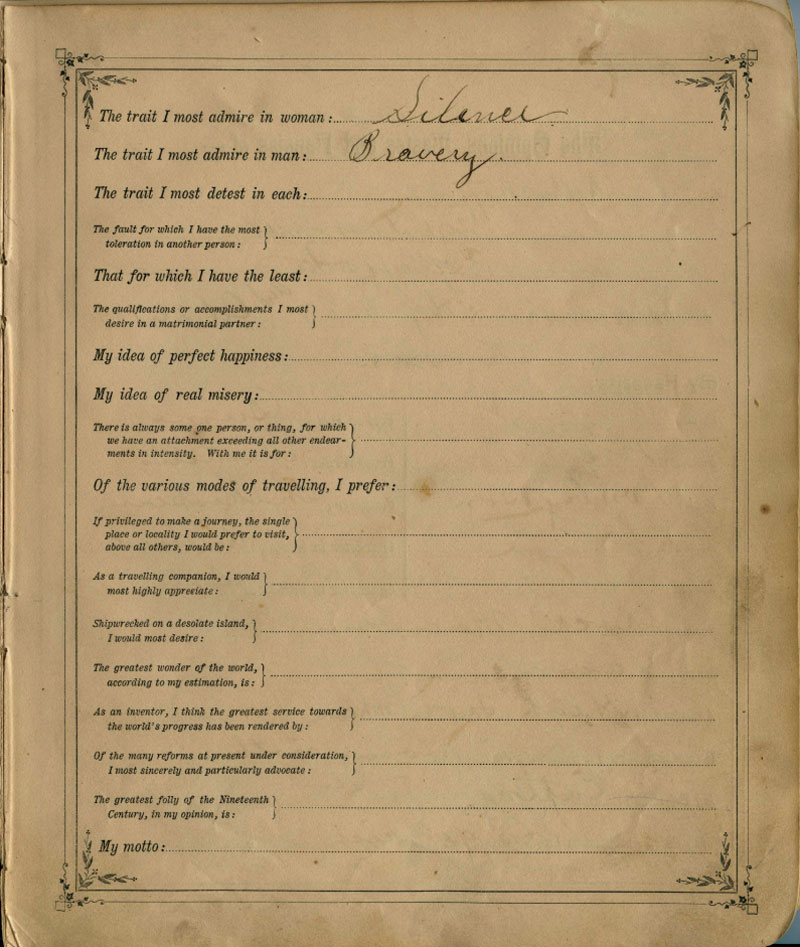 The trait I most admire in woman: Silence
The trait I most admire in man: Bravery.
The trait I most detest in each:
The fault for which I have the most
toleration in another person:
That for which I have the least:
The qualifications or accomplishments I most
desire in a matrimonial partner:
My idea of perfect happiness:
My idea of real misery:
There is always some one person, or thing, for which
we have an attachment exceeding all other endear-
ments in intensity. With me it is for:
Of the various modes of travelling, I prefer:
If privileged to make a journey, the single
place or locality I would prefer to visit,
above all others, would be:
As a travelling companion, I would
most highly appreciate:
Shipwrecked on a desolate island,
I would most desire:
The greatest wonder of the world,
according to my estimation, is:
As an inventor, I think the greatest service towards
the world's progress has been rendered by:
Of the many reforms at present under consideration,
I most sincerely and particularly advocate:
The greatest folly of the Nineteenth
Century, in my opinion, is:
My motto: